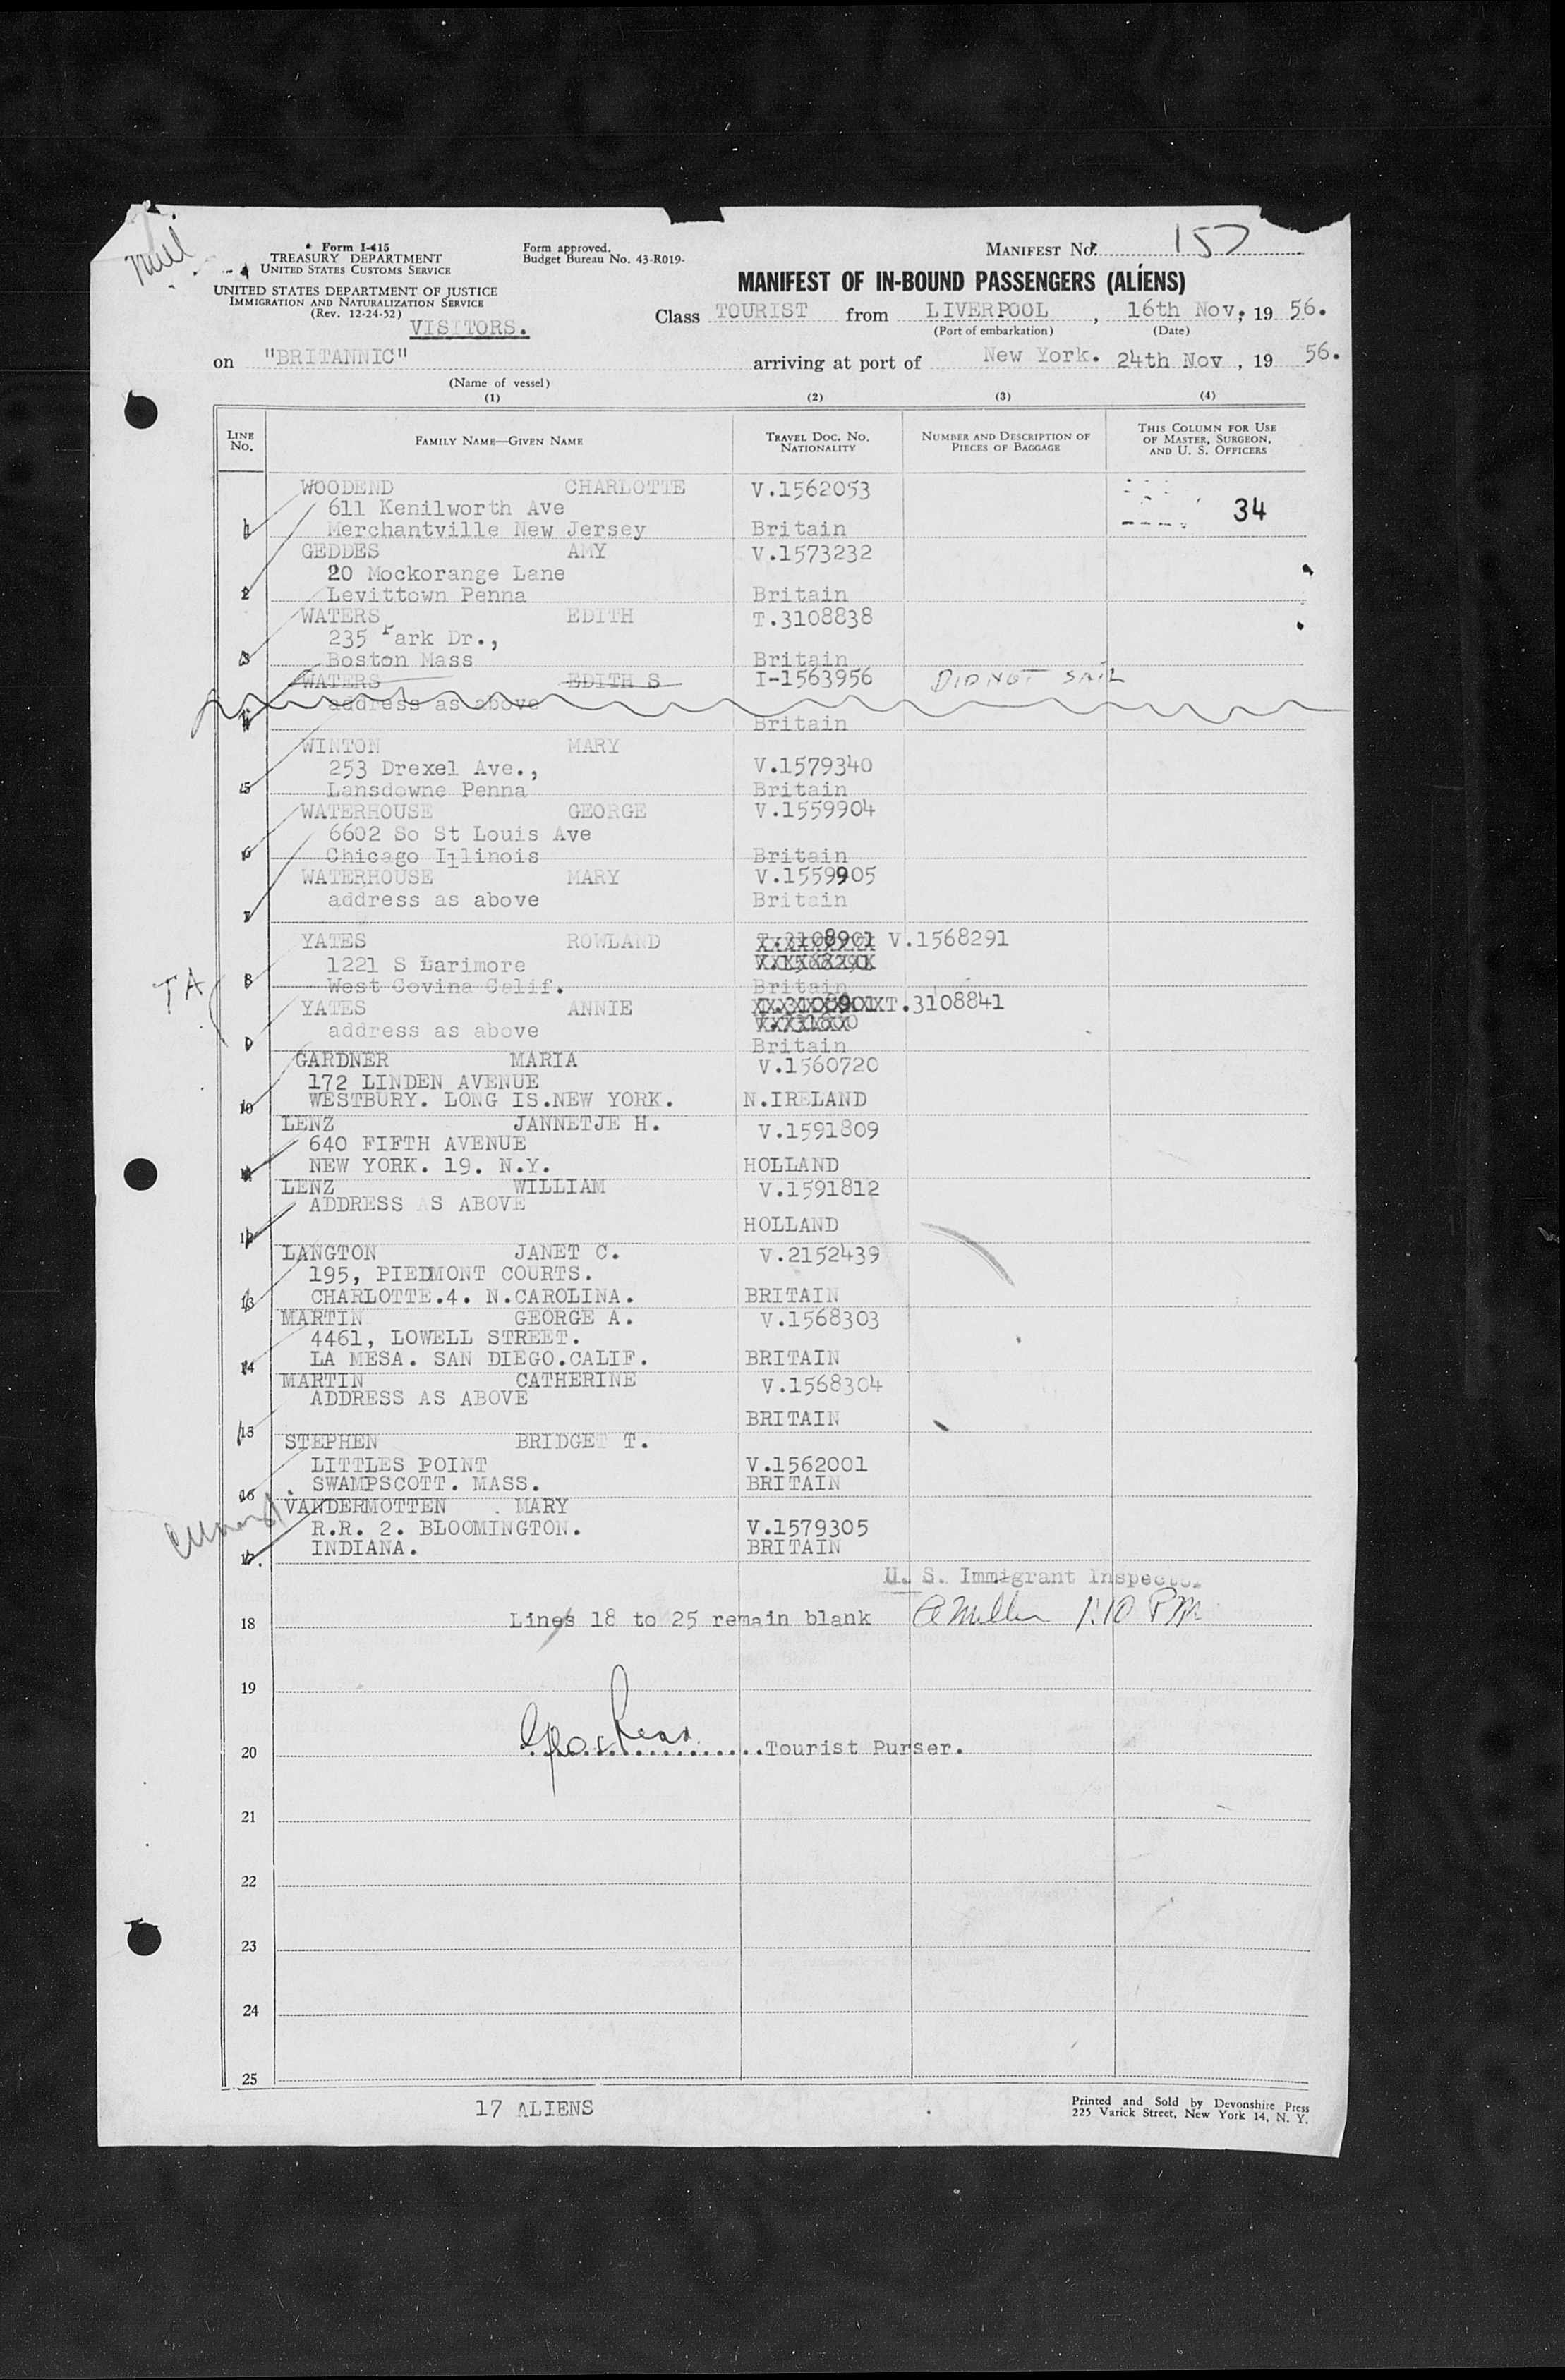 Form I-415
TREASURY DEPARTMENT
UNITED STATES CUSTOMS SERVICE
UNITED STATES DEPARTMENT OF JUSTICE
IMMIGRATION AND NATURALIZATION SERVICE
(Rev. 12-24-52)
VISITORS.
Form approved.
Budget Bureau No. 43-R019-
MANIFEST No. 157
MANIFEST OF IN-BOUND PASSENGERS (ALIENS)
Class TOURIST from LIVERPOOL, 16th Nov, 19 56.
(Port of embarkation) (Date)
on "BRITANNIC" arriving at port of New York. 24th Nov, 19 56.
(Name of vessel)
(1) (2) (3) (4)
LINE No. FAMILY NAME—GIVEN NAME TRAVEL DOC. No. NATIONALITY NUMBER AND DESCRIPTION OF PIECES OF BAGGAGE THIS COLUMN FOR USE OF MASTER, SURGEON, AND U. S. OFFICERS
WOODEND CHARLOTTE V.1562053
611 Kenilworth Ave 34
1 Merchantville New Jersey Britain
GEDDES AMY V.1573232
20 Mockorange Lane
2 Levittown Penna Britain
WATERS EDITH T.3108838
235 Park Dr.,
3 Boston Mass Britain
WATERS EDITH S I-1563956 DID NOT SAIL
address as above
4 Britain
WINTON MARY
253 Drexel Ave., V.1579340
5 Lansdowne Penna Britain
WATERHOUSE GEORGE V.1559904
6602 So St Louis Ave
6 Chicago Illinois Britain
WATERHOUSE MARY V.1559905
address as above Britain
7
YATES ROWLAND T.3108901 V.1568291
1221 S Larimore V.1568291
TA 8 West Covina Calif. Britain
YATES ANNIE T.3108841
address as above
9 Britain
GARDNER MARIA V.1560720
172 LINDEN AVENUE
10 WESTBURY. LONG IS.NEW YORK. N.IRELAND
LENZ JANNETJE H. V.1591809
640 FIFTH AVENUE
11 NEW YORK. 19. N.Y. HOLLAND
LENZ WILLIAM V.1591812
ADDRESS AS ABOVE
12 HOLLAND
LANGTON JANET C. V.2152439
195, PIEDMONT COURTS.
13 CHARLOTTE.4. N.CAROLINA. BRITAIN
MARTIN GEORGE A. V.1568303
4461, LOWELL STREET.
14 LA MESA. SAN DIEGO.CALIF. BRITAIN
MARTIN CATHERINE V.1568304
ADDRESS AS ABOVE
15 BRITAIN
STEPHEN BRIDGET T.
LITTLES POINT V.1562001
16 SWAMPSCOTT. MASS. BRITAIN
VANDERMOTTEN MARY
R.R. 2. BLOOMINGTON. V.1579305
17. INDIANA. BRITAIN
U. S. Immigrant Inspector
18 Lines 18 to 25 remain blank A Miller 1:10 PM
19
20 Tourist Purser.
21
22
23
24
25
17 ALIENS
Printed and Sold by Devonshire Press
225 Varick Street, New York 14, N. Y.